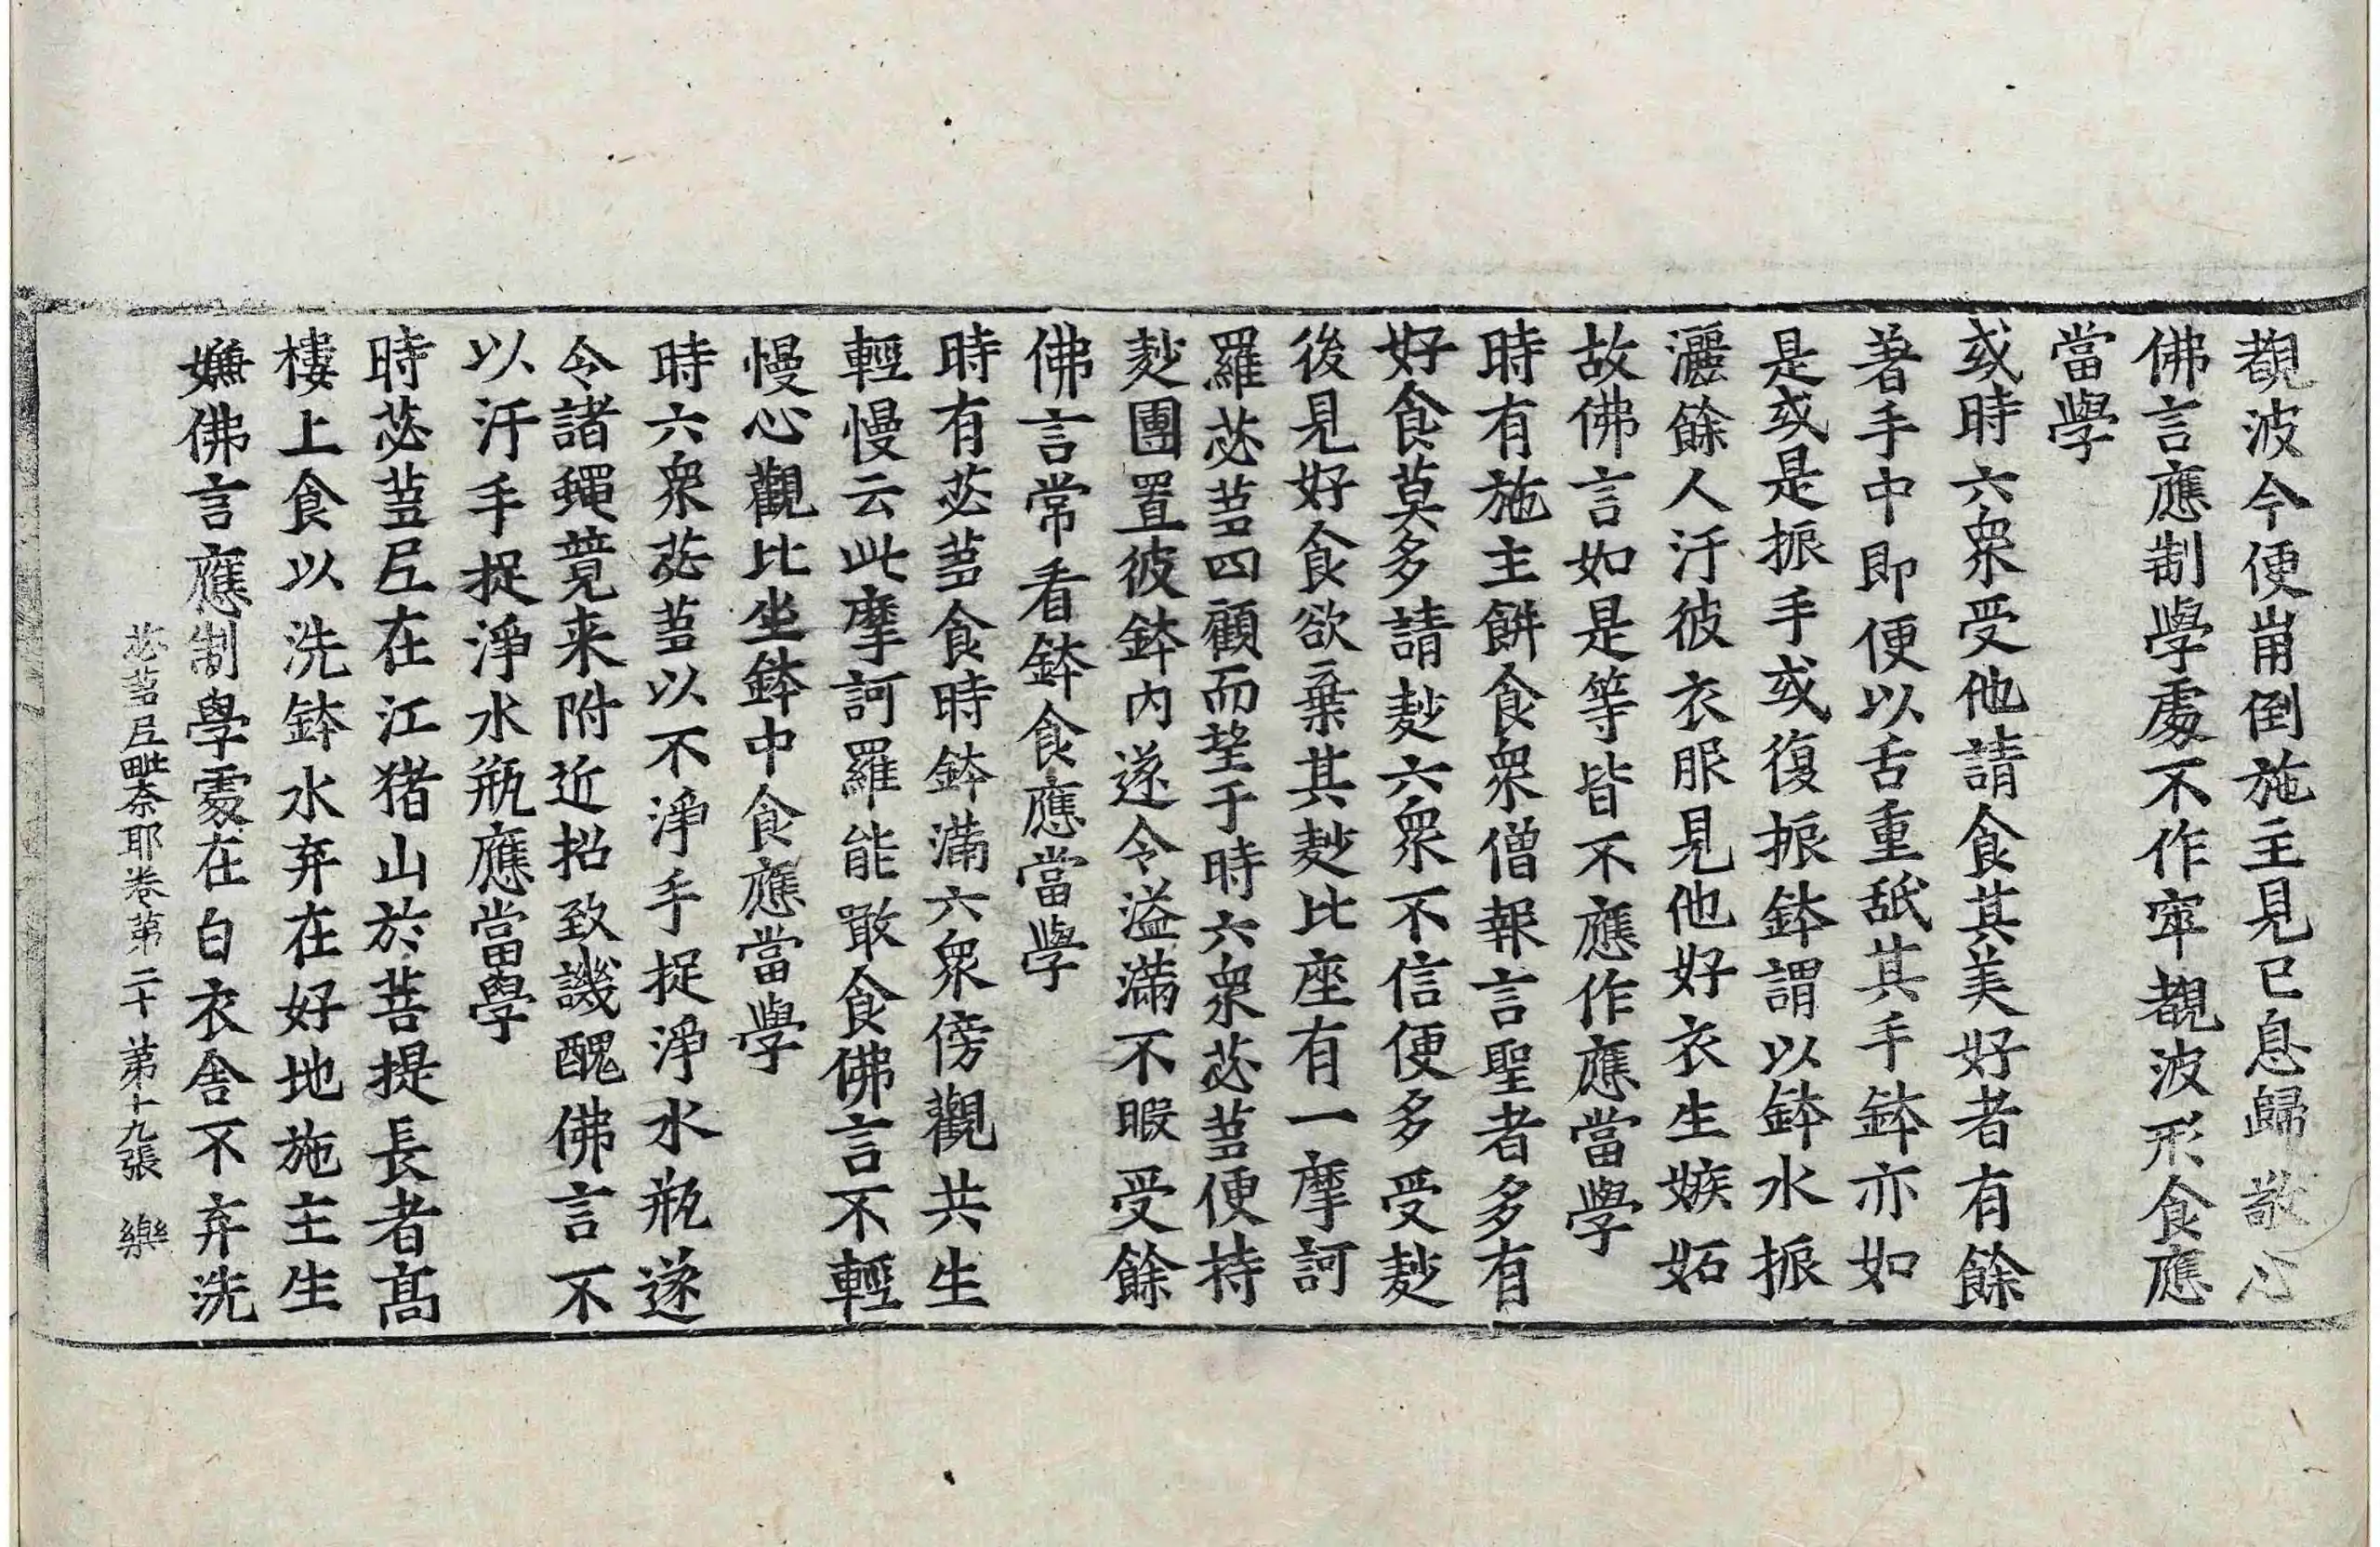 覩波今便崩倒施主見已息歸敬心
佛言應制學處不作窣覩波形食應
當學
或時六衆受他請食其美好者有餘
著手中即便以舌重舐其手鉢亦如
是或是振手或復振鉢謂以鉢水振
灑餘人汙彼衣服見他好衣生嫉妬
故佛言如是等皆不應作應當學
時有施主餅食衆僧報言聖者多有
好食莫多請麨六衆不信便多受麨
後見好食欲棄其麨比座有一摩訶
羅苾蒭四顧而望于時六衆苾蒭便持
麨團置彼鉢内遂令溢滿不暇受餘
佛言常看鉢食應當學
時有苾蒭食時鉢滿六衆傍觀共生
輕慢云此摩訶羅能噉食佛言不輕
慢心觀比坐鉢中食應當學
時六衆苾蒭以不淨手捉淨水瓶遂
令諸蠅競来附近招致譏醜佛言不
以汙手捉淨水瓶應當學
時苾蒭尼在江猪山於菩提長者髙
樓上食以洗鉢水弃在好地施主生
嫌佛言應制學處在白衣舍不弃洗
苾蒭尼毗奈耶卷第二十 第十九張 樂